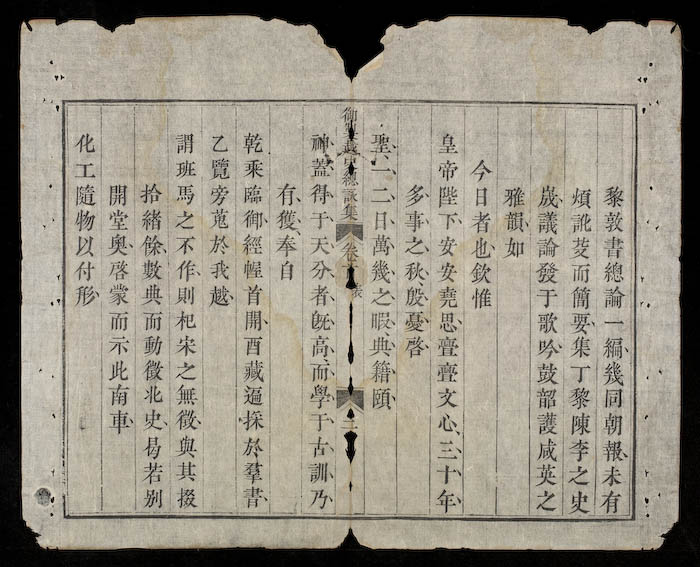 黎敦書總論一編幾同朝報未有
煩訛芟而簡要集丁黎陳李之史
議論發于歌吟鼓韶護咸英之
雅韻如
今日者也欽惟
皇帝陛下安安堯思亹亹文心三十年
多事之秋殷憂啓
聖一二日萬幾之暇典籍頤
御製越史總詠集 卷 表 二
神蓋得于天分者旣高而學于古訓乃
有獲奉自
乾乘臨御經幄首開酉藏逼採於羣書
乙覽旁蒐於我越
謂班馬之不作則杞宋之無徵與其掇
拾緒餘數典而動徵北史曷若別
開堂奧啓蒙而示此南車
化工隨物以付形